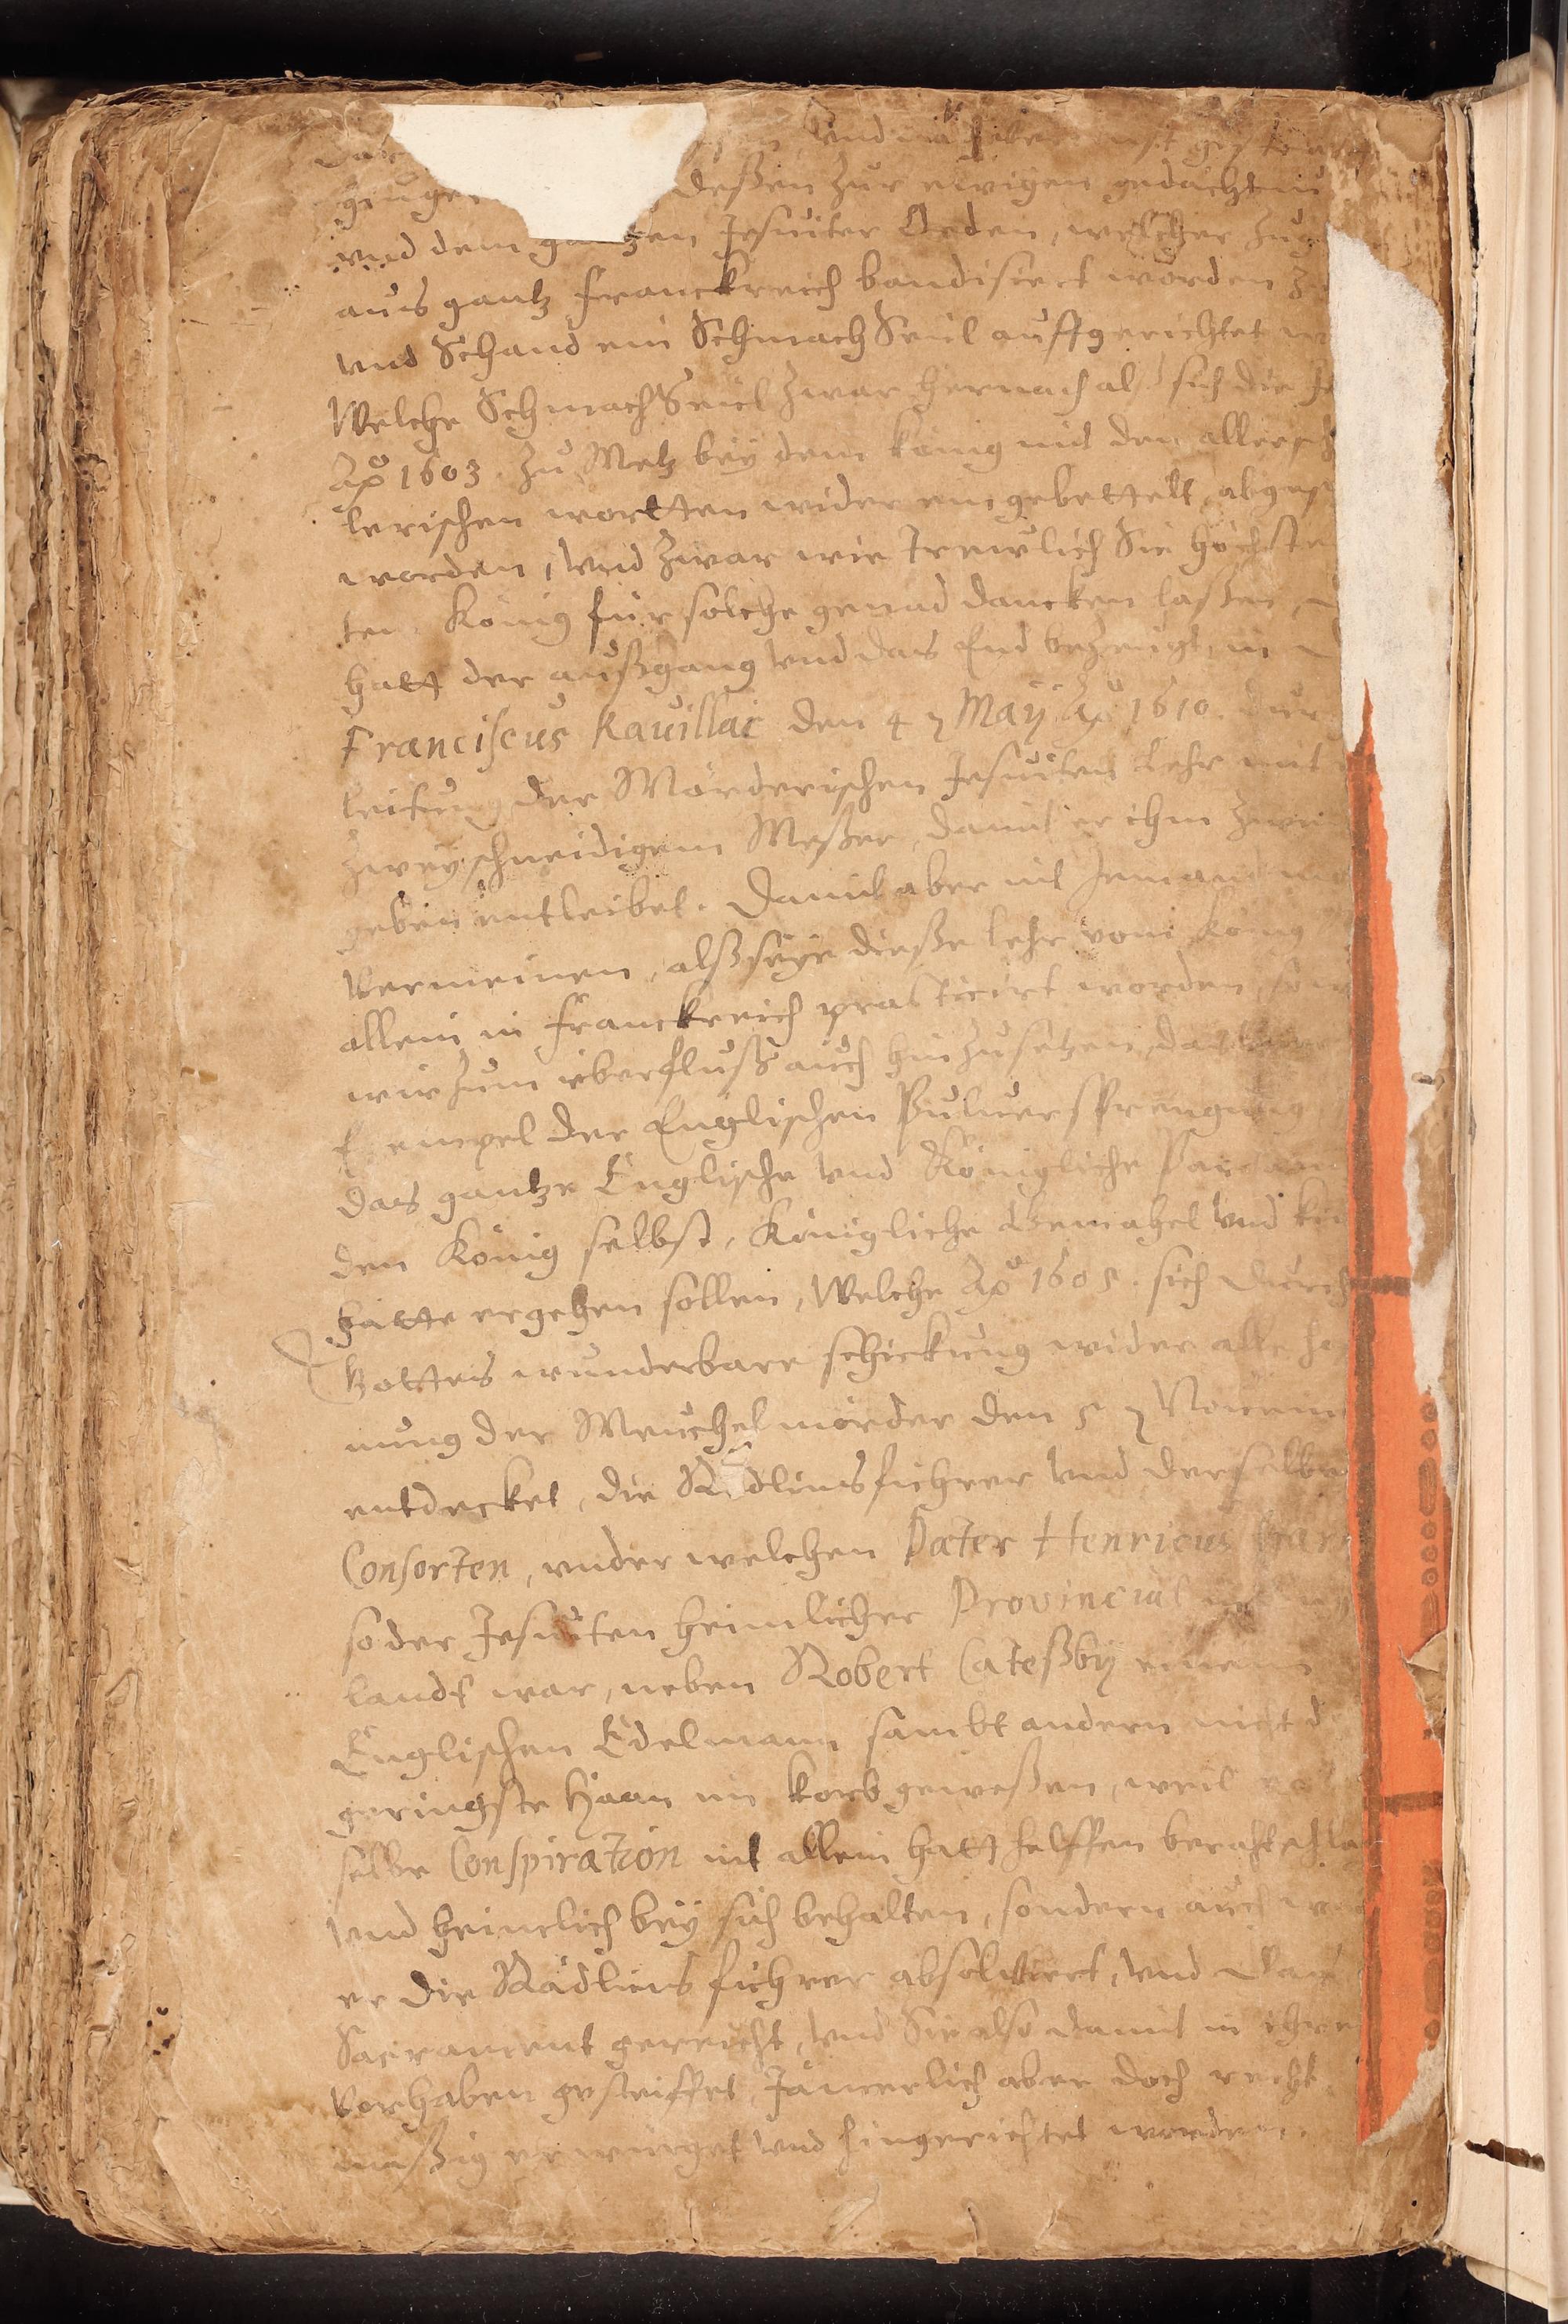 deßen zur ewigen gedächtnu
vnd dem gantzen Jesuiter Orden, welcher zug
aus gantz Franckreich bandisiert worden z
vnd Schand ein Schmach Seül auffgerichtet w
Welche Schmach Seül zwar hernach alß sich die
Aō 1603. zu Metz beÿ dem könig mit den allersch
lerischen wortten wider eingebettelt, abges
worden, Vnd zwar wie trewlich Sie höchste
ten König für solche genad dancken laßen,
hatt der außgang Vnd das End bezeugt, in
Franciscus Ravillac den 4 May Aō 1610. dur
leitung der Mörderischen Jesuiten Lehr mit
zweyschneidigem Meßer, damit er ihm zwei
geben entleibet. Damit aber nit Jemand mö
Vermeinen, alß seÿe dieße Lehr vom König
allein in Franckreich practicirt worden, so w
wir zum überfluß auch hinzusetzen, das
Exempel der Englischen Puluersprengung
das gantze Englische Vnd Königliche Parlam
den König selbst, Königliche Gemahel Vnd kin
hatte ergehen sollen, Welche Aō 1605. sich durch
Gottes wunderbare schickung wider alle hof
nung der Meuchelmörder den 5 Nouem
entdecket, die Rädlinsführer Vnd derselben
Consorten, vnder welchen Pater Henricus Gar
so der Jesuiten heimlicher Provincial
landt war, neben Robert Cateßby einem
Englischen Edelmann sambt andern nicht d
geringste Haan im korb geweßen, weil
selbe Conspiration nit allein hatt helffen berahtschla
Vnd heimlich beÿ sich behalten, sondern auch
er die Rädlinsführer absolviert, Vnd das
Sacrament gereicht, Vnd Sie also damit in ihre
Vorhaben gesteiffet, Jämerlich aber doch recht
mäßig erwürget Vnd hingerichtet worden.